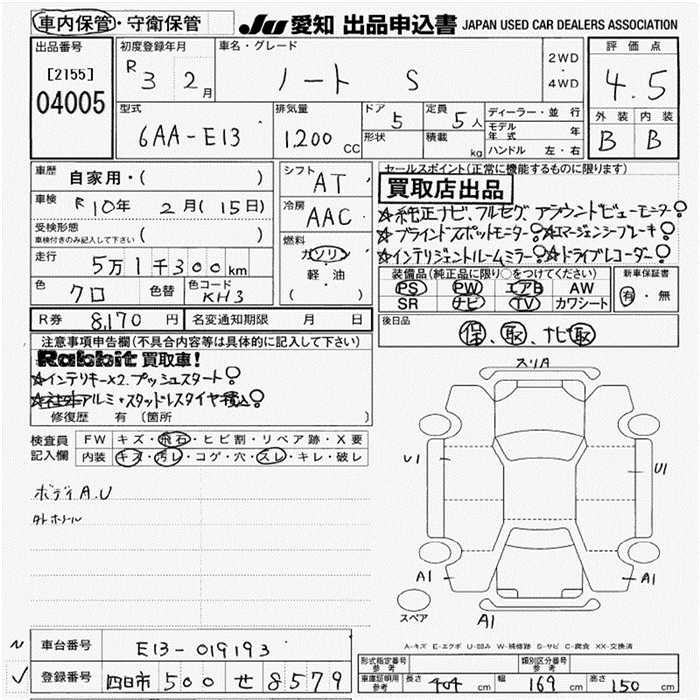 車内保管・守衛保管
JU 愛知 出品申込書 JAPAN USED CAR DEALERS ASSOCIATION
出品番号
[2155]
04005
初度登録年月
R 3 2月
車名・グレード
ノート S
2WD
・
4WD
評価点
4.5
外装 内装
B B
型式
6AA-E13
排気量
1,200 CC
ドア 5
形状
定員 5人
積載 kg
ディーラー・並行
モデル年式 年
ハンドル 左・右
車歴 自家用・( )
車検 R10年 2月(15日)
受検形態
車検付きのみ記入して下さい ( )
走行 5万1千300km
色 クロ
色替
色コード KH3
シフト AT
冷房 AAC
燃料
ガソリン
軽・油
( )
R券 8,170円
名変通知期限 月 日
セールスポイント(正常に機能するものに限ります)
買取店出品
☆純正ナビ、フルセグ、アラウンドビューモニター!
☆ブラインドスポットモニター!☆エマージェンシーブレーキ!
☆インテリジェントルームミラー!☆ドライブレコーダー!
装備品(純正品に限り○をつけてください)
PS PW エアB AW
SR ナビ TV カワシート
新車保証書
有・無
後日品
保、取、ナビ取
注意事項申告欄(不具合内容等は具体的に記入して下さい)
Rabbit 買取車!
☆インテリキー×2、プッシュスタート!
アルミ+スタッドレスタイヤ積込!
修復歴 有(箇所 )
検査員記入欄
FW キズ・飛石・ヒビ割・リペア跡・X要
内装 キズ・汚レ・コゲ・穴・スレ・キレ・破レ
ボディA.U
タトホール
スリA
U1
U1
A1
A1
A1
スペア
A-キズ E-エクボ U-凹み W-補修跡 S-サビ C-腐食 XX-交換済
車台番号 E13-019193
登録番号 四日市 500 せ 8579
型式指定番号
参考
類別区分番号
参考
車庫証明用
参考
長さ 404cm
幅 169cm
高さ 150cm